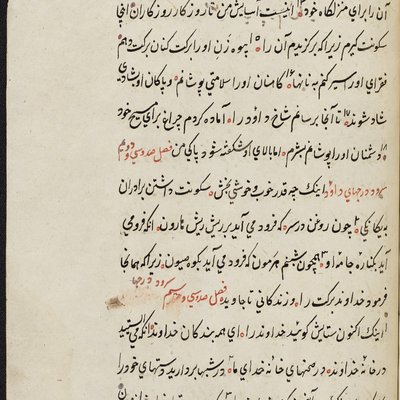 آن را براي منزلگاه خود ۱۴ اينست آسايش من تا روزگار روزگاران اينجا
سكونت گيرم زيرا كه برگزيدم آن را ۱۵ بيوه زن او را بركت كنان بركت دهم
فقراي او را سير كنم به نانها ۱۶ كاهنان او را سلامتي پوشانم و پاكان او شادي
شاد شوند ۱۷ تا آنجا برسانم شاخ داؤد را آماده كردم چراغ براي مسيح خود
۱۸ دشمنان او را پوشانم بشرم اما بالاي او شگفته شود پاكي من فصل صد و سي و دويم
سرود درجهاي داؤد اينك چه قدر خوب و خوشي بخش سكونت داشتن برادران
به يكانكي ۲ چون روغن در سر كه فرود مي آيد بر ريش ريش هارون آنكه فرو مي
آيد بكناره جامه او ۳ همچون شبنم هرمون كه فرود مي آيد بكوه صيون زيرا كه همانجا
فرمود خداوند بركت را و زندگاني تا جاويد فصل صد و سي و سيم سرود درجها
اينك اكنون ستايش گوئيد خداوند را اي همه بندگان خداوند آنكه مي ايستيد
در خانه خداوند در صحنهاي خانه خداي ما ۲ در شبها برداريد دستهاي خود را